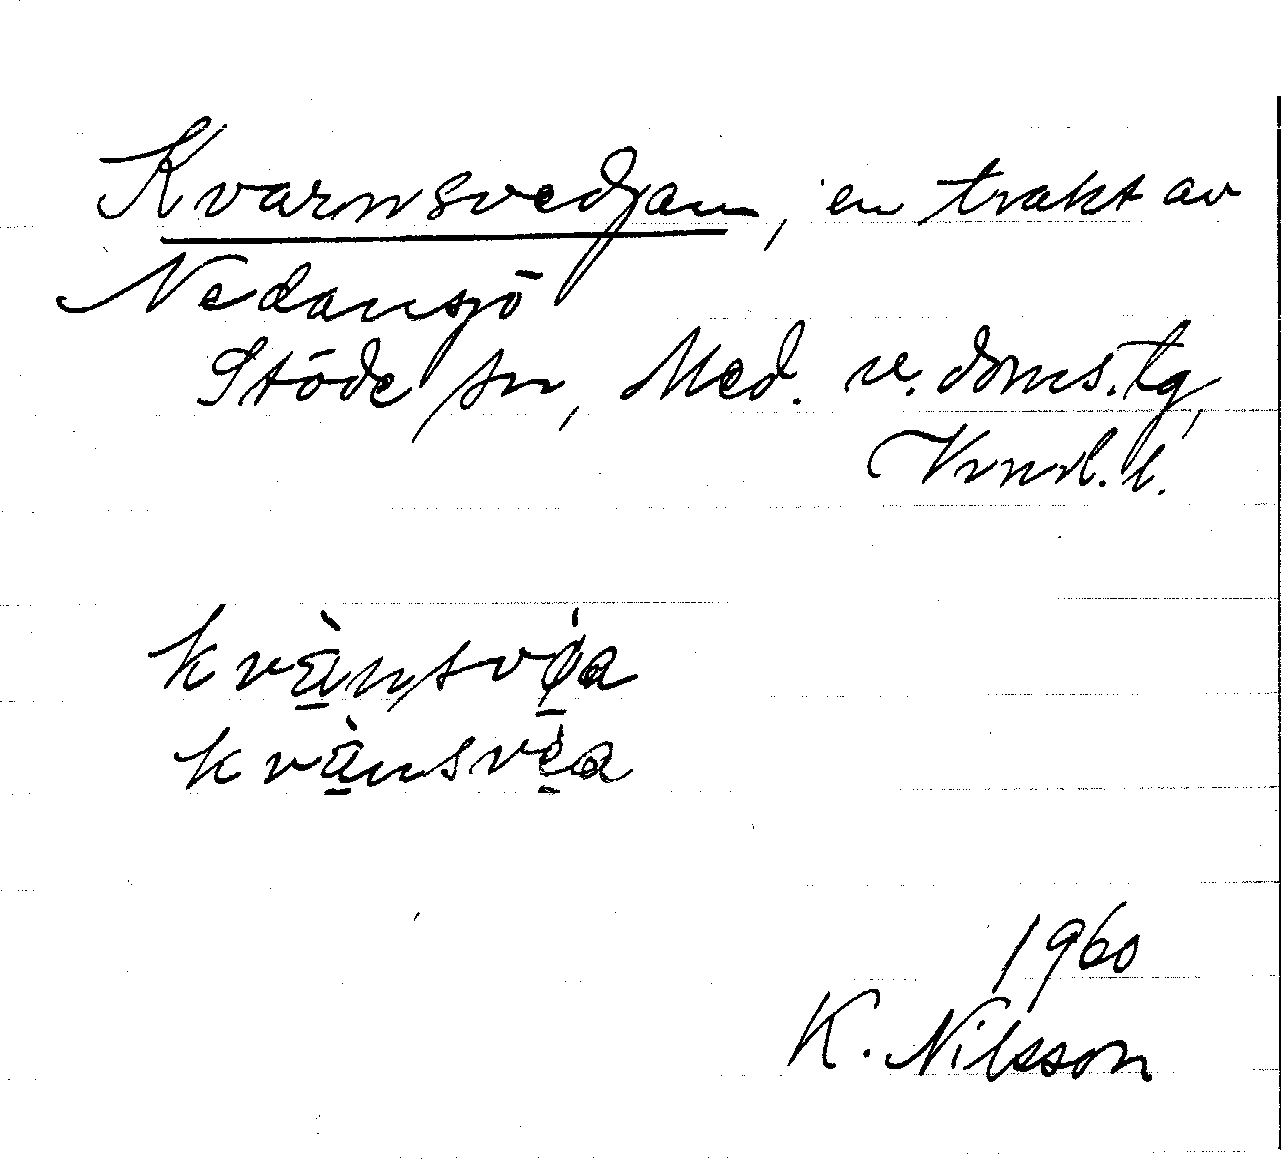 Kvarnsvedjan, en trakt av
Nedansjö
Stöde sn, Med. v. doms.tg,
Vrnrl. l.
kvà̱nsvé̱a
kvà̱nsvè̱a
1960
K. Nilsson